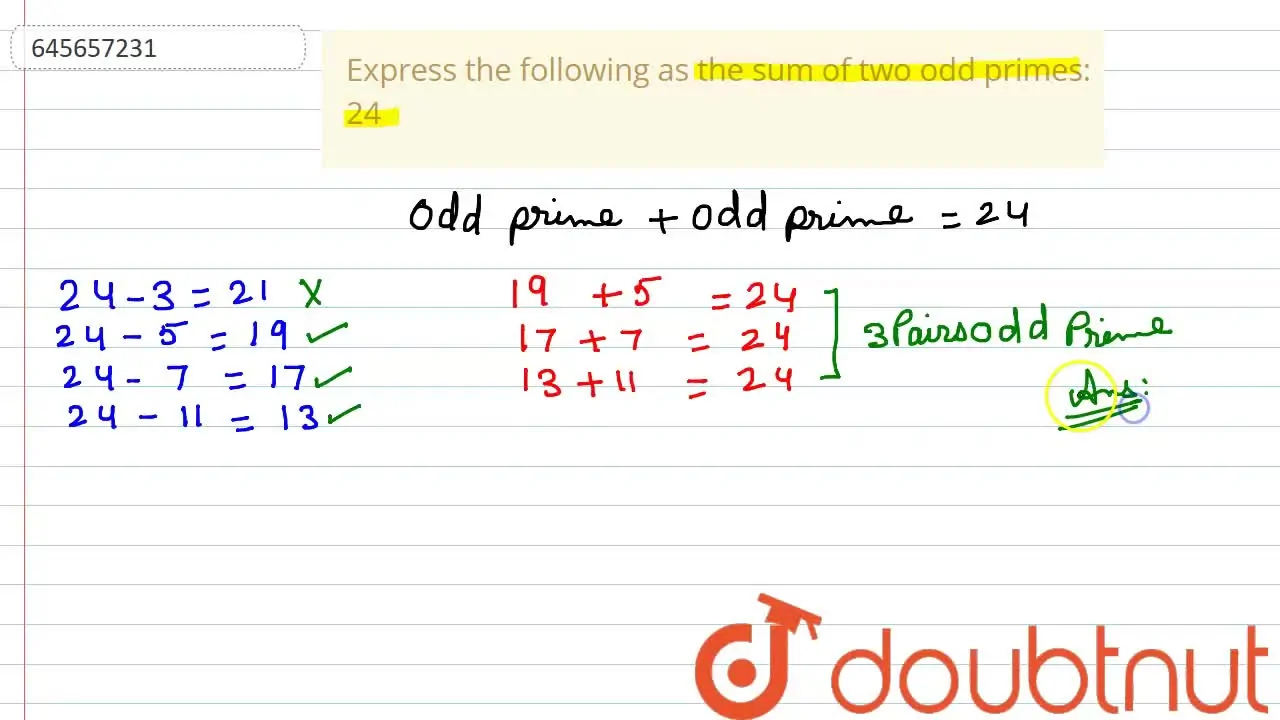 645657231
Express the following as the sum of two odd primes:
24
Odd prime + Odd prime = 24
24 - 3 = 21 X
24 - 5 = 19 ✓
24 - 7 = 17 ✓
24 - 11 = 13 ✓
19 + 5 = 24
17 + 7 = 24
13 + 11 = 24
3 Pairs Odd Prime
Ans:
doubtnut